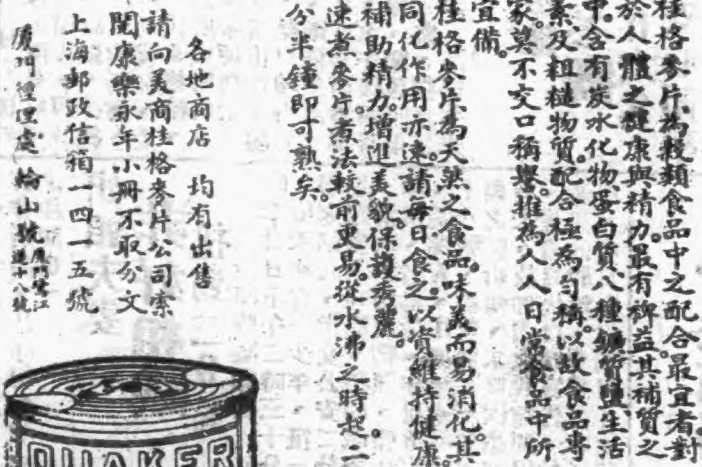 桂格麥片為穀類食品中之配合最宜者。對
於人體之健康與精力。最有裨益。其補質之
中。含有炭水化物蛋白質、八種鑛質鹽、生活
素、及粗糙物質。配合極為勻稱。以故食品專
家。莫不交口稱譽。推為人人日常食品中所
宜備。
桂格麥片。為天然之食品。味美而易消化。其
同化作用亦速。請每日食之。以資維持健康。
補助精力。增進美貌。保護秀麗。
速煮麥片。煮法較前更易。從水沸之時起。二
分半鐘即可熟矣。
各地商店 均有出售
請向美商桂格麥片公司索
閱康樂永年小冊不取分文
上海郵政信箱一四一五號
厦門經理處 輪山號 厦門鷺江道十八號
QUAKER